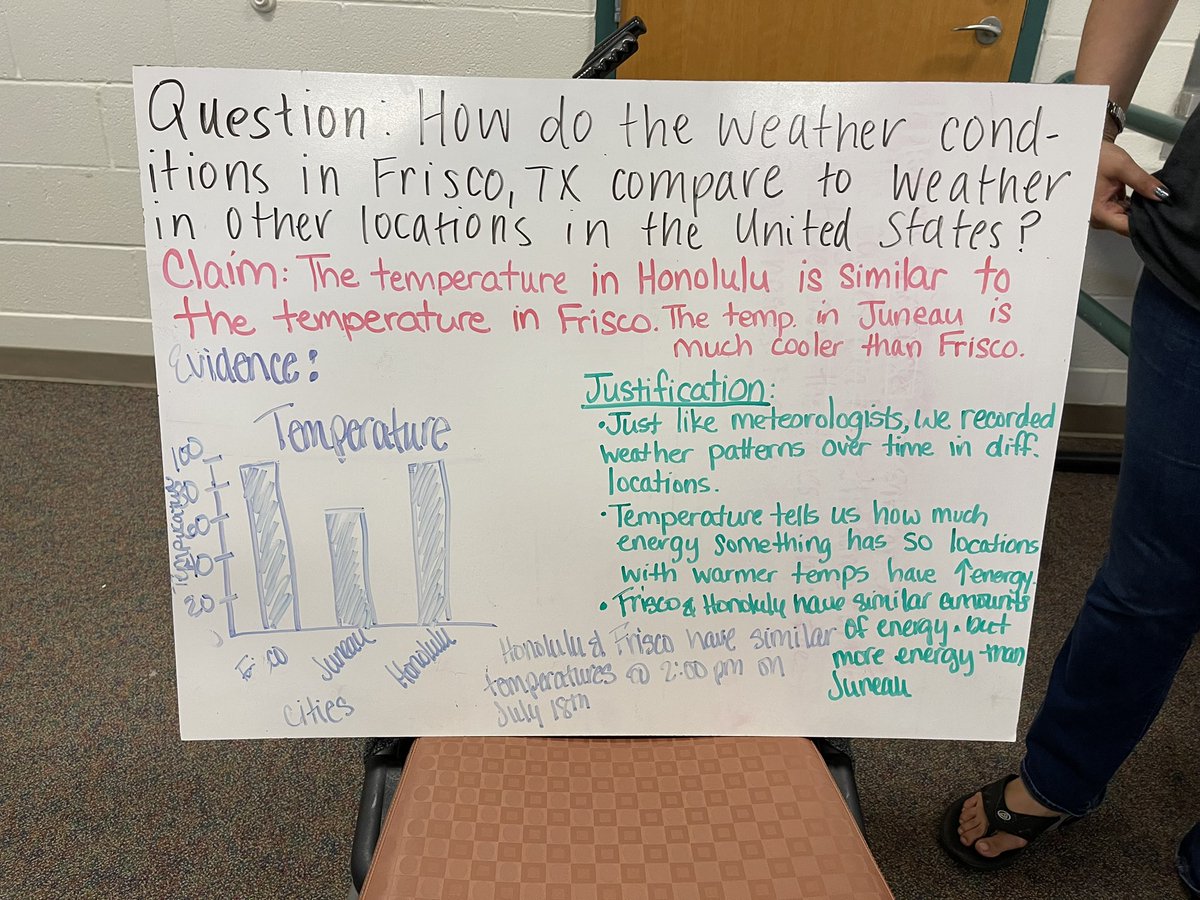 Question: How do the weather cond-
itions in Frisco, TX compare to weather
in other locations in the United States?
Claim: The temperature in Honolulu is similar to
the temperature in Frisco. The temp. in Juneau is
much cooler than Frisco.
Evidence:
Temperature
100
80
60
40
20
Temperature
Frisco
Juneau
Honolulu
cities
Honolulu & Frisco have similar
temperatures @ 2:00 pm on
July 18th
Justification:
• Just like meteorologists, we recorded
weather patterns over time in diff.
locations.
• Temperature tells us how much
energy something has so locations
with warmer temps have ↑energy.
• Frisco & Honolulu have similar amounts
of energy. but
more energy than
Juneau